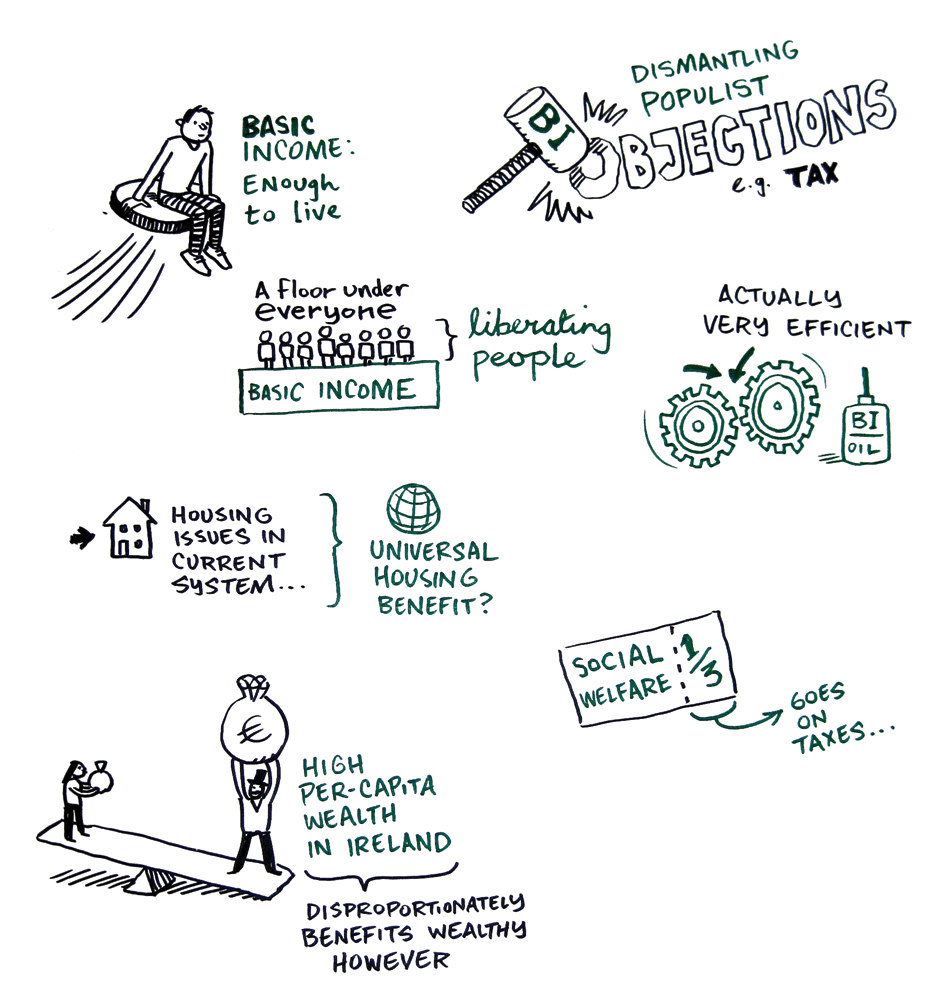 BASIC
INCOME:
ENough
to live
DISMANTLING
POPULIST
OBJECTIONS
e.g. TAX
BI
A floor under
everyone
BASIC INCOME
liberating
people
ACTUALLY
VERY EFFICIENT
BI
OIL
HOUSING
ISSUES IN
CURRENT
SYSTEM...
UNIVERSAL
HOUSING
BENEFIT?
SOCIAL
WELFARE
1/3
GOES
ON
TAXES...
€
HIGH
PER-CAPITA
WEALTH
IN IRELAND
DISPROPORTIONATELY
BENEFITS WEALTHY
HOWEVER